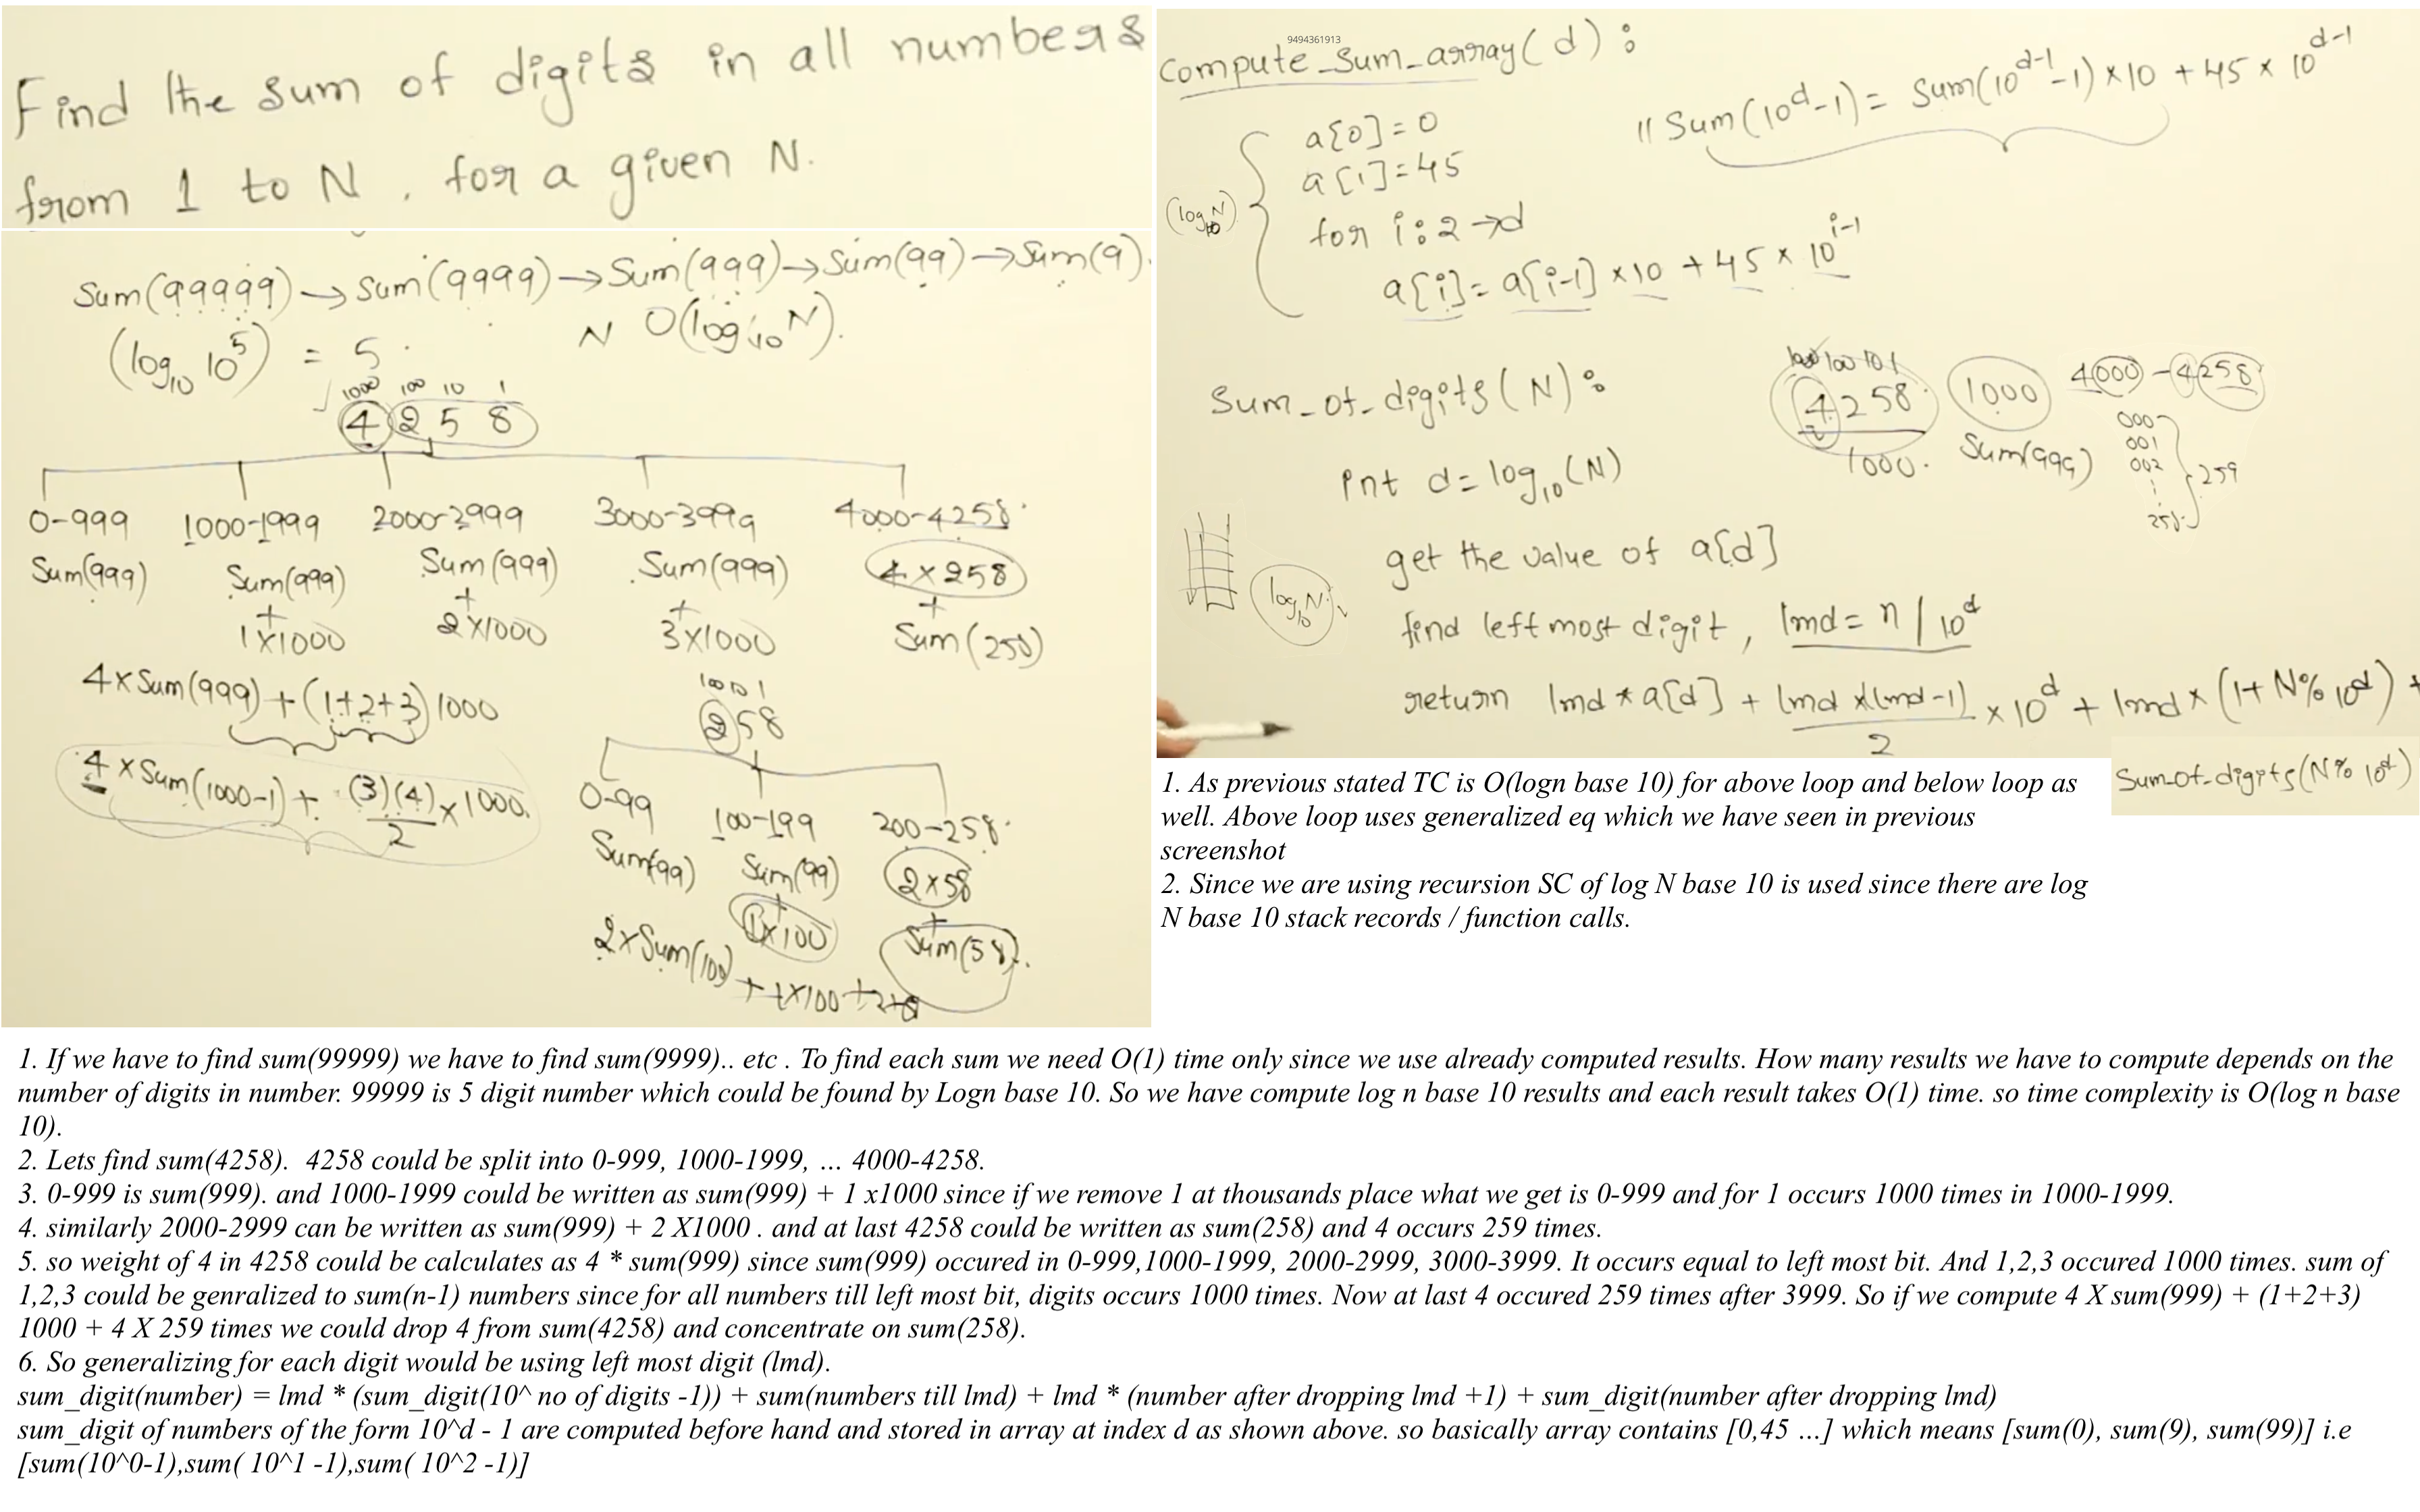 Find the sum of digits in all numbers
from 1 to N, for a given N.
Sum(99999) → Sum(9999) → Sum(999) → Sum(99) → Sum(9).
(log₁₀ 10⁵) = 5 . N O(log₁₀N).
1000 100 10 1
4 2 5 8
0-999 1000-1999 2000-2999 3000-3999 4000-4258
Sum(999) Sum(999) Sum(999) Sum(999) 4 x 258
+ + + +
1x1000 2x1000 3x1000 Sum(258)
4 x Sum(999) + (1+2+3) 1000
4 x Sum(1000-1) + (3)(4)/2 x 1000.
100 10 1
2 5 8
0-99 100-199 200-258
Sum(99) Sum(99) 2x58
+ +
1x100 Sum(58).
2xSum(100) + 1x100 +
9494361913
Compute_Sum_array(d):
// Sum(10^d-1) = Sum(10^d-1 -1) x 10 + 45 x 10^d-1
a[0] = 0
a[1] = 45
(log₁₀N)
for i: 2 → d
a[i] = a[i-1] x 10 + 45 x 10^i-1
Sum_of_digits(N):
100 10 1
4258 1000 4000 - 4258
1000. Sum(999)
000
001
002
258
259
int d = log₁₀(N)
get the value of a[d]
log₁₀N
find left most digit, lmd = n / 10^d
return lmd * a[d] + lmd x (lmd-1)/2 x 10^d + lmd x (1+ N% 10^d) +
Sum_of_digits(N% 10^d)
1. As previous stated TC is O(logn base 10) for above loop and below loop as
well. Above loop uses generalized eq which we have seen in previous
screenshot
2. Since we are using recursion SC of log N base 10 is used since there are log
N base 10 stack records / function calls.
1. If we have to find sum(99999) we have to find sum(9999).. etc . To find each sum we need O(1) time only since we use already computed results. How many results we have to compute depends on the
number of digits in number. 99999 is 5 digit number which could be found by Logn base 10. So we have compute log n base 10 results and each result takes O(1) time. so time complexity is O(log n base
10).
2. Lets find sum(4258).  4258 could be split into 0-999, 1000-1999, ... 4000-4258.
3. 0-999 is sum(999). and 1000-1999 could be written as sum(999) + 1 x1000 since if we remove 1 at thousands place what we get is 0-999 and for 1 occurs 1000 times in 1000-1999.
4. similarly 2000-2999 can be written as sum(999) + 2 X1000 . and at last 4258 could be written as sum(258) and 4 occurs 259 times.
5. so weight of 4 in 4258 could be calculates as 4 * sum(999) since sum(999) occured in 0-999,1000-1999, 2000-2999, 3000-3999. It occurs equal to left most bit. And 1,2,3 occured 1000 times. sum of
1,2,3 could be genralized to sum(n-1) numbers since for all numbers till left most bit, digits occurs 1000 times. Now at last 4 occured 259 times after 3999. So if we compute 4 X sum(999) + (1+2+3)
1000 + 4 X 259 times we could drop 4 from sum(4258) and concentrate on sum(258).
6. So generalizing for each digit would be using left most digit (lmd).
sum_digit(number) = lmd * (sum_digit(10^ no of digits -1)) + sum(numbers till lmd) + lmd * (number after dropping lmd +1) + sum_digit(number after dropping lmd)
sum_digit of numbers of the form 10^d - 1 are computed before hand and stored in array at index d as shown above. so basically array contains [0,45 ...] which means [sum(0), sum(9), sum(99)] i.e
[sum(10^0-1),sum( 10^1 -1),sum( 10^2 -1)]